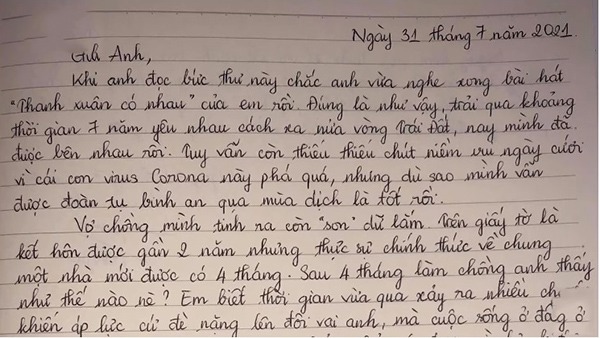 Ngày 31 tháng 7 năm 2021.
Gửi Anh,
Khi anh đọc bức thư này chắc anh vừa nghe xong bài hát
"Thanh xuân có nhau" của em rồi. Đúng là như vậy, trải qua khoảng
thời gian 7 năm yêu nhau cách xa nửa vòng Trái Đất, nay mình đã
được bên nhau rồi. Tuy vẫn còn thiếu thiếu chút niềm vui ngày cưới
vì cái con virus Corona này phá quá, nhưng dù sao mình vẫn
được đoàn tụ bình an qua mùa dịch là tốt rồi.
Vợ chồng mình tính ra còn "son" dữ lắm. Trên giấy tờ là
kết hôn được gần 2 năm nhưng thực sự chính thức về chung
một nhà mới được có 4 tháng. Sau 4 tháng làm chồng anh thấy
như thế nào nè? Em biết thời gian vừa qua xảy ra nhiều
khiến áp lực cứ đè nặng lên đôi vai anh, mà cuộc sống ở đâu ở